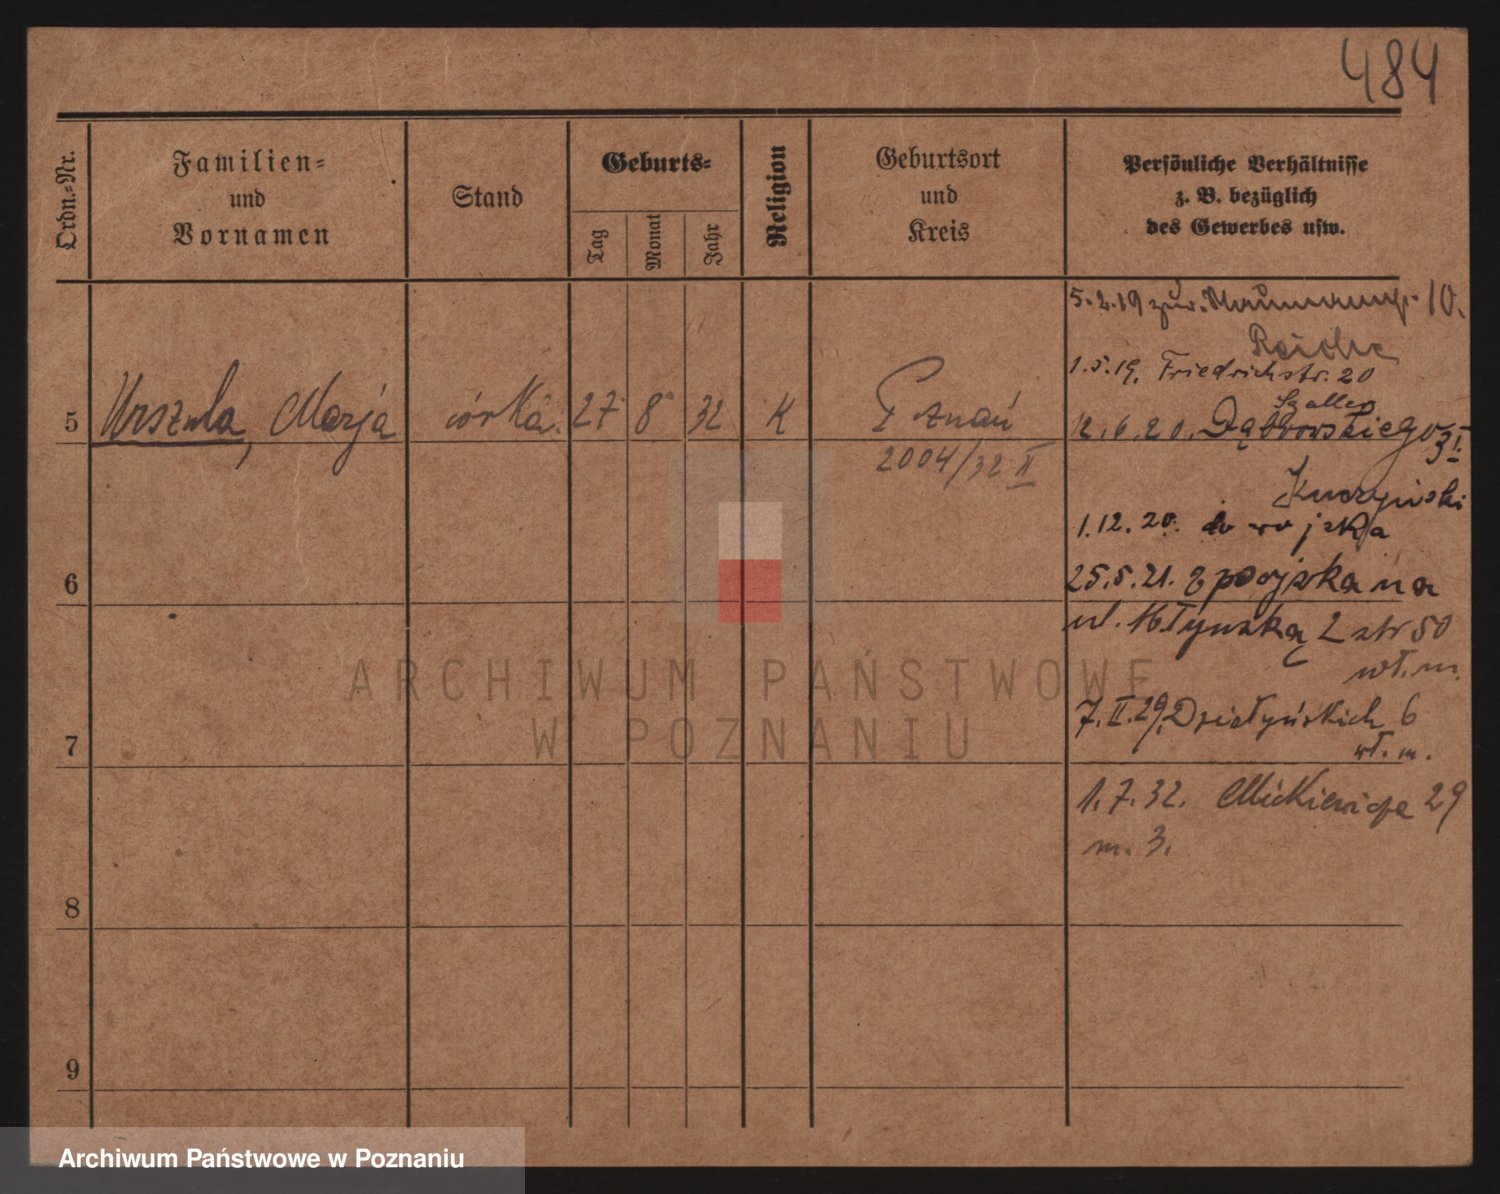 484
Ordn.=Nr.
Familien=
und
Vornamen
Stand
Geburts=
Tag
Monat
Jahr
Religion
Geburtsort
und
Kreis
Persönliche Verhältnisse
z. B. bezüglich
des Gewerbes usw.
5.2.19 zur. 10.
Reiche
1.5.19. Friedrichstr. 20
Szaller
5 Urszula, Marja córka. 27 8 32 K Poznań 12.6.20. Dąbrowskiego 3 I.
2004/32 II
1.12.20. do wojska
6 25.5.21. z wojska na
ul. Młyńską 2 str 50
wł. m.
7 7.II.29. Działyńskich 6
wł. m.
1.7.32. Mickiewicza 29
m. 3.
8
9
ARCHIWUM PAŃSTWOWE
W POZNANIU
Archiwum Państwowe w Poznaniu